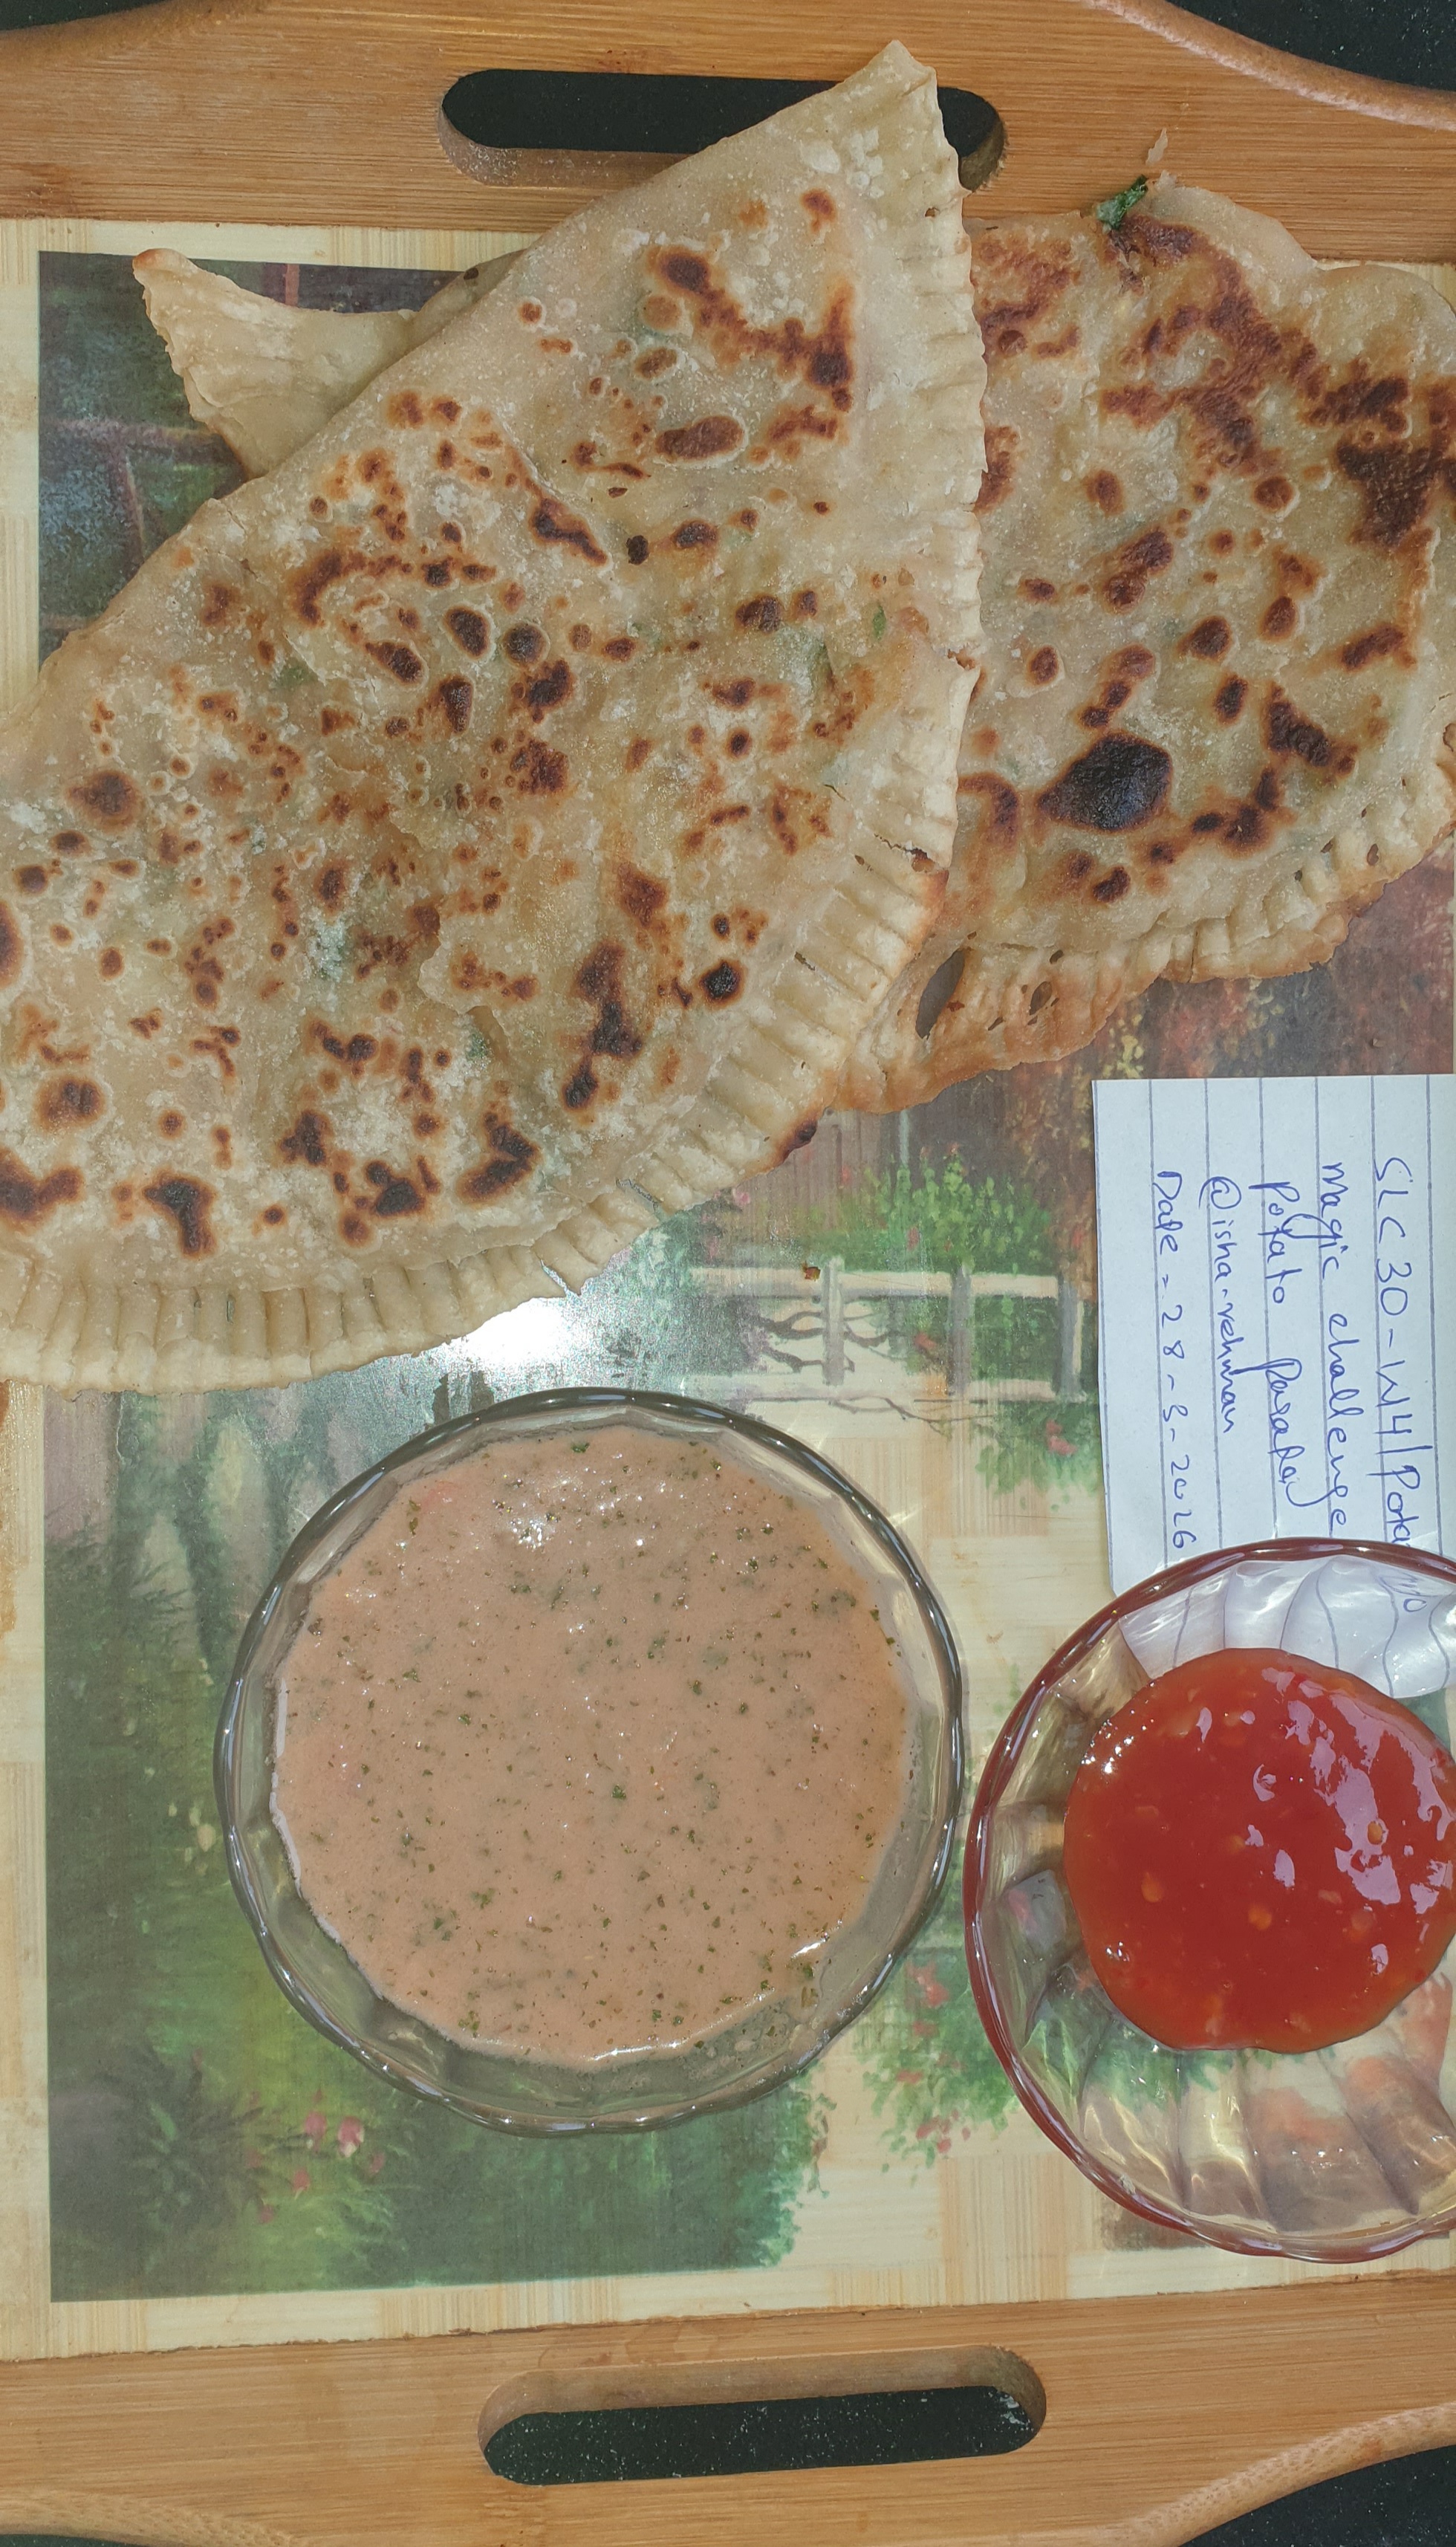 SLC30-W4/Pota
magic challenge
Potato Parata
@isha.rehman
Date - 28-3-2026